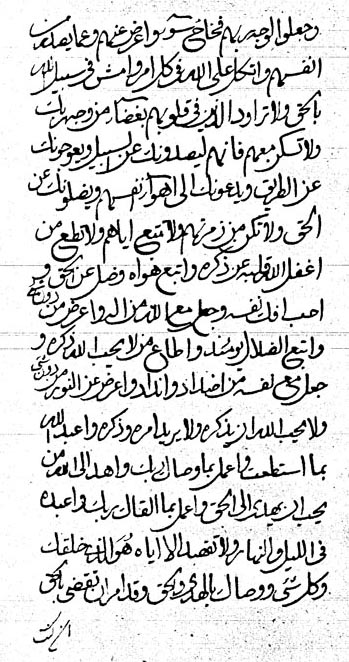 وجعلوا الوجه ربهم فخاخ سوء واعرض عنهم وعما يعلمون
انفسهم واتكل على الله في كل امر وامش في سبيل الله
بالحق ولا تراود الذين في قلوبهم بغضاء من وجه ربك
ولا تسكن معهم فانهم ليصدونك عن السبيل ويعوجونك
عن الطريق ويدعونك الى اهواء نفسهم ويضلونك عن
الحق ولا تكن من زمرتهم ولا تتبع اياهم ولا تطع من
اغفل الله قلبه عن ذكره واتبع هواه وضل عن الحق و
احب افك نفسه وجعل مع الله من اله واعرض من
واتبع الضلال واطاع من لا يحب الله ذكره و
جعل مع نفسه من اضداد وانداد واعرض عن النور
ولا يحب الله ان يذكره ولا يريد امره وذكره واعبد الله
بما استطعت واعمل بما وصاك ربك واهد الى الله من
يحب ان يهدى الى الحق واعمل بما القاك ربك واعبده
في الليل والنهار ولا تقصد الا اياه هو الذي خلقك
وكل شئ ووصاك بالهدى والحق وقد امر ان تقضى بالحق